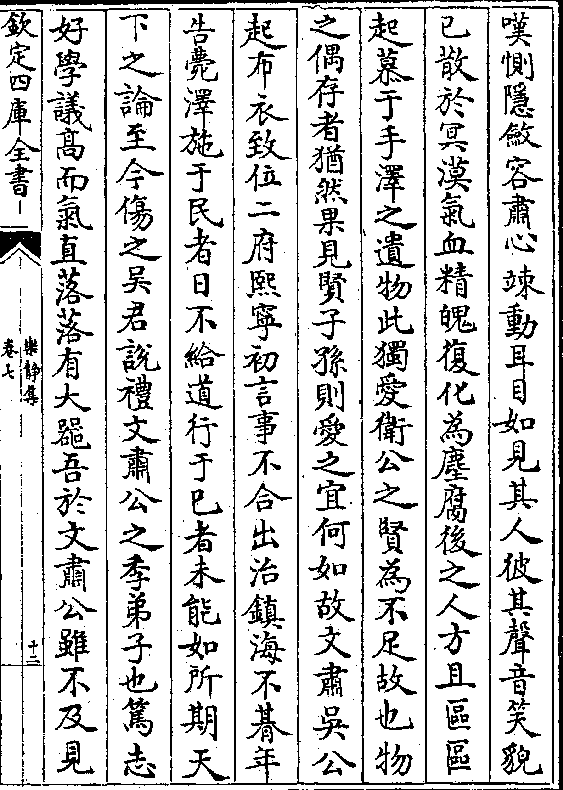 嘆惻隱斂容肅心竦動耳目如見其人彼其聲音笑貌
已散於冥漠氣血精魄復化為塵腐後之人方且區區
起慕于手澤之遺物此獨愛衛公之賢為不足故也物
之偶存者猶然果見賢子孫則愛之宜何如故文肅吳公
起布衣致位二府熙寧初言事不合出治鎮海不朞年
告薨澤施于民者日不給道行于已者未能如所期天
下之論至今傷之吳君說禮文肅公之季弟子也篤志
好學議髙而氣直落落有大噐吾於文肅公雖不及見
欽定四庫全書
樂靜集
卷七
十三